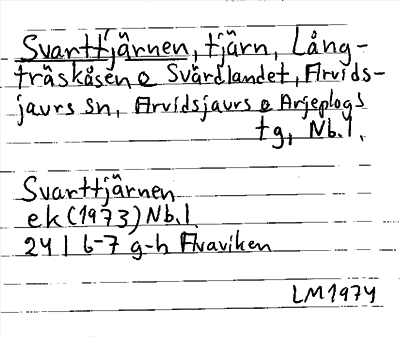 Svarttjärnen, tjärn, Lång-
träskåsen o Svärdlandet, Arvids-
jaurs sn, Arvidsjaurs o Arjeplogs
tg, Nb.l.
Svarttjärnen
ek (1973) Nb.l
24 I 6-7 g-h Avaviken
LM1974